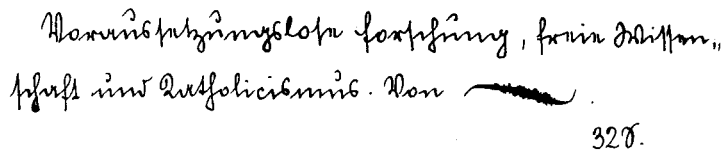 Voraussetzungslose Forschung, freie Wissen„
schaft und Katholicismus. Von
328.